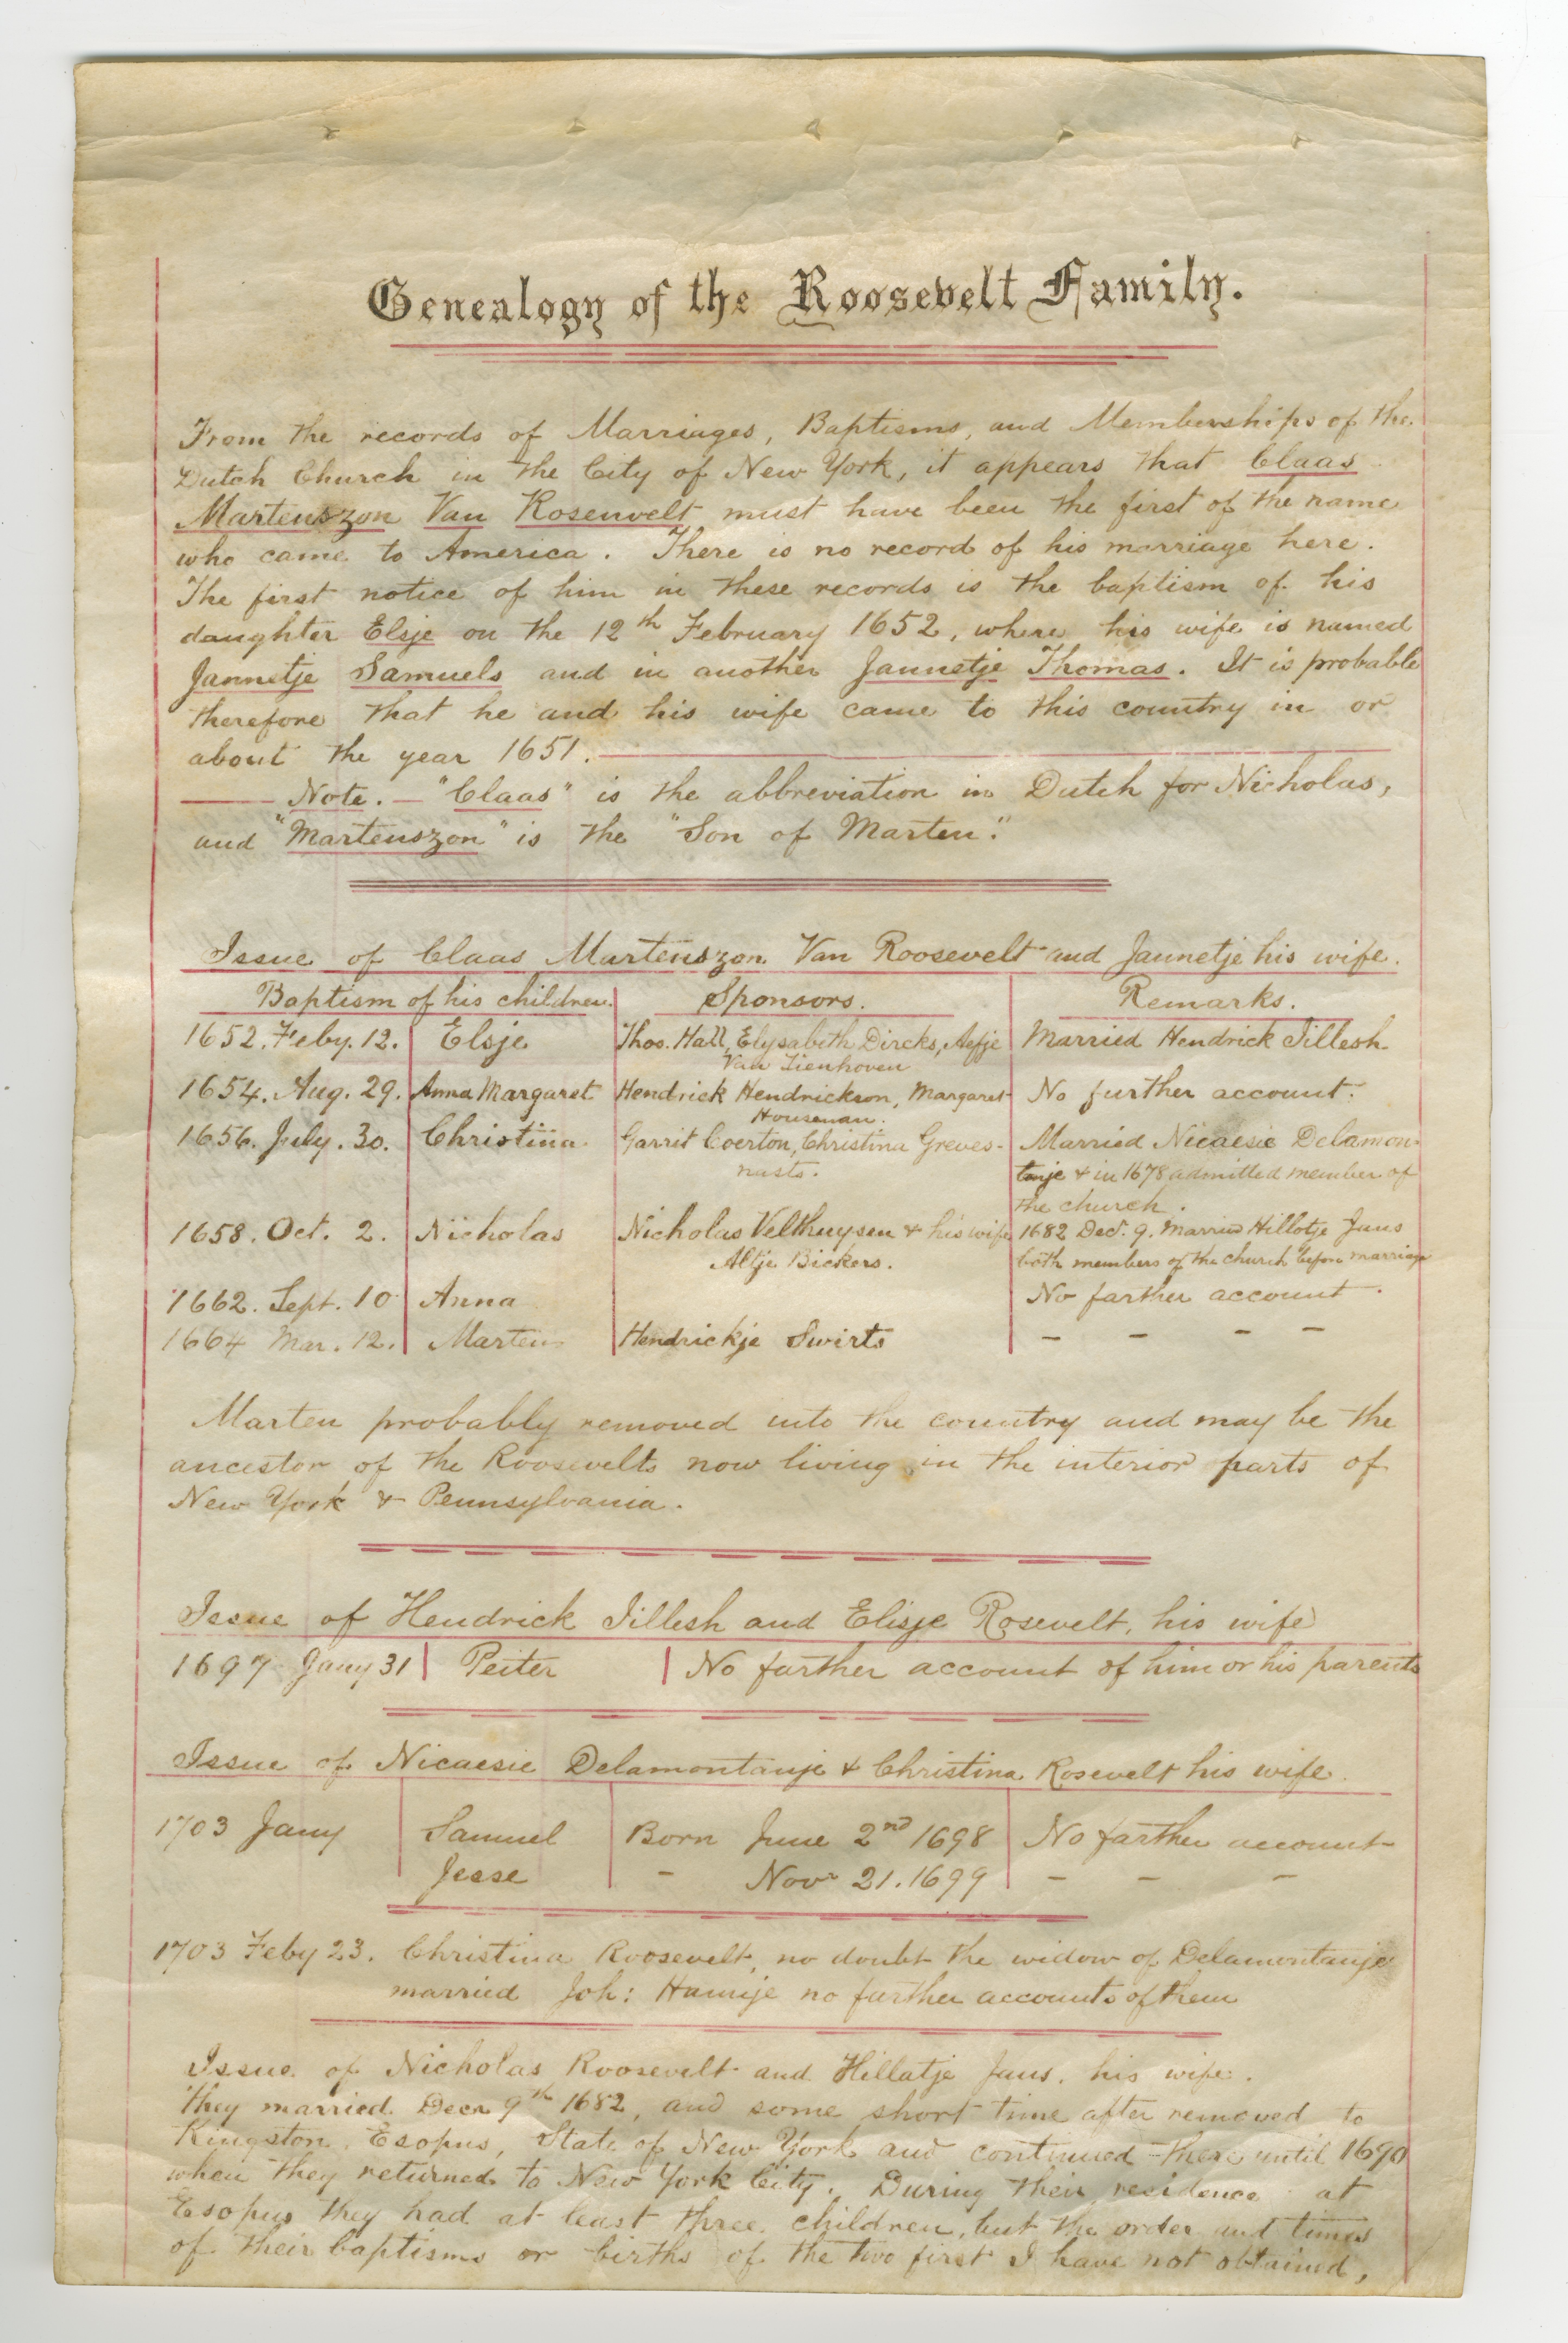 Genealogy of the Roosevelt Family.
From the records of Marriages, Baptisms, and Memberships of the
Dutch Church in the City of New York, it appears that Claas
Martenszon Van Rosenvelt must have been the first of the name
who came to America. There is no record of his marriage here.
The first notice of him in these records is the baptism of his
daughter Elsje on the 12th February 1652, where his wife is named
Jannetje Samuels and in another Jannetje Thomas. It is probable
therefore that he and his wife came to this country in or
about the year 1651.
Note. — "Claas" is the abbreviation in Dutch for Nicholas,
and "Martenszon" is the "Son of Marten".
Issue of Claas Martenszon Van Roosevelt and Jannetje his wife.
Baptism of his children. Sponsors. Remarks.
1652. Feby. 12. Elsje Thos. Hall, Elysabeth Dircks, Aefje Married Hendrick Jillesh
Van Tienhoven
1654. Aug. 29. Anna Margaret Hendrick Hendrickson, Margaret No further account.
Houseman.
1656. July. 30. Christina Garrit Coerton, Christina Greves- Married Nicaesie Delamon-
nasts. tanje & in 1678 admitted member of
the church.
1658. Oct. 2. Nicholas Nicholas Velthuysen & his wife 1682 Decr. 9. Married Hillotje Jans
Altje Bickers. both members of the church before marriage
1662. Sept. 10 Anna No farther account.
1664 Mar. 12. Marten Hendrickje Swirts - - - -
Marten probably removed into the country and may be the
ancestor of the Roosevelts now living in the interior parts of
New York & Pennsylvania.
Issue of Hendrick Jillesh and Elisje Rosevelt, his wife
1697 Jany 31 Peiter No farther account of him or his parents
Issue of Nicaesie Delamontanje & Christina Rosevelt his wife.
1703 Jany Samuel Born June 2nd 1698 No farther account
Jesse - Novr 21. 1699 - - -
1703 Feby 23. Christina Roosevelt, no doubt the widow of Delamontanje
married Joh: Hamije no further accounts of them
Issue of Nicholas Roosevelt and Hillatje Jans, his wife.
They married Decr 9th 1682, and some short time after removed to
Kingston, Esopus, State of New York and continued there until 1690
when they returned to New York City. During their residence at
Esopus they had at least three children, but the order and times
of their baptisms or births of the two first I have not obtained,